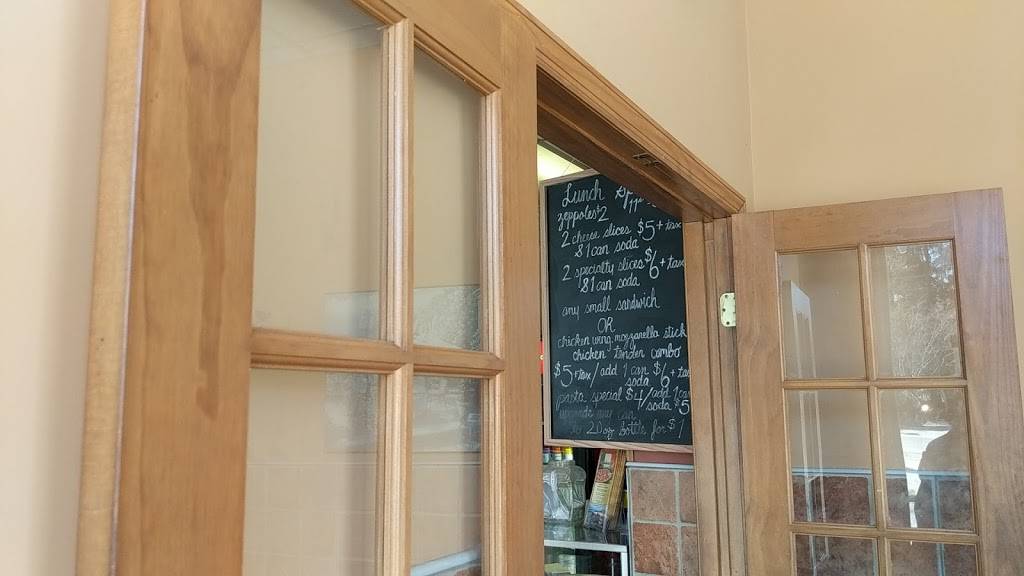 Lunch
zeppoles $2
2 cheese slices $5 + tax
& 1 can soda
2 specialty slices $6 + tax
& 1 can soda
any small sandwich
OR
chicken wing, mozzarella stick
chicken tender combo
$5 + tax / add 1 can $6 + tax
soda
pasta special $4 / add 1 can
soda $5
20oz bottle for $1